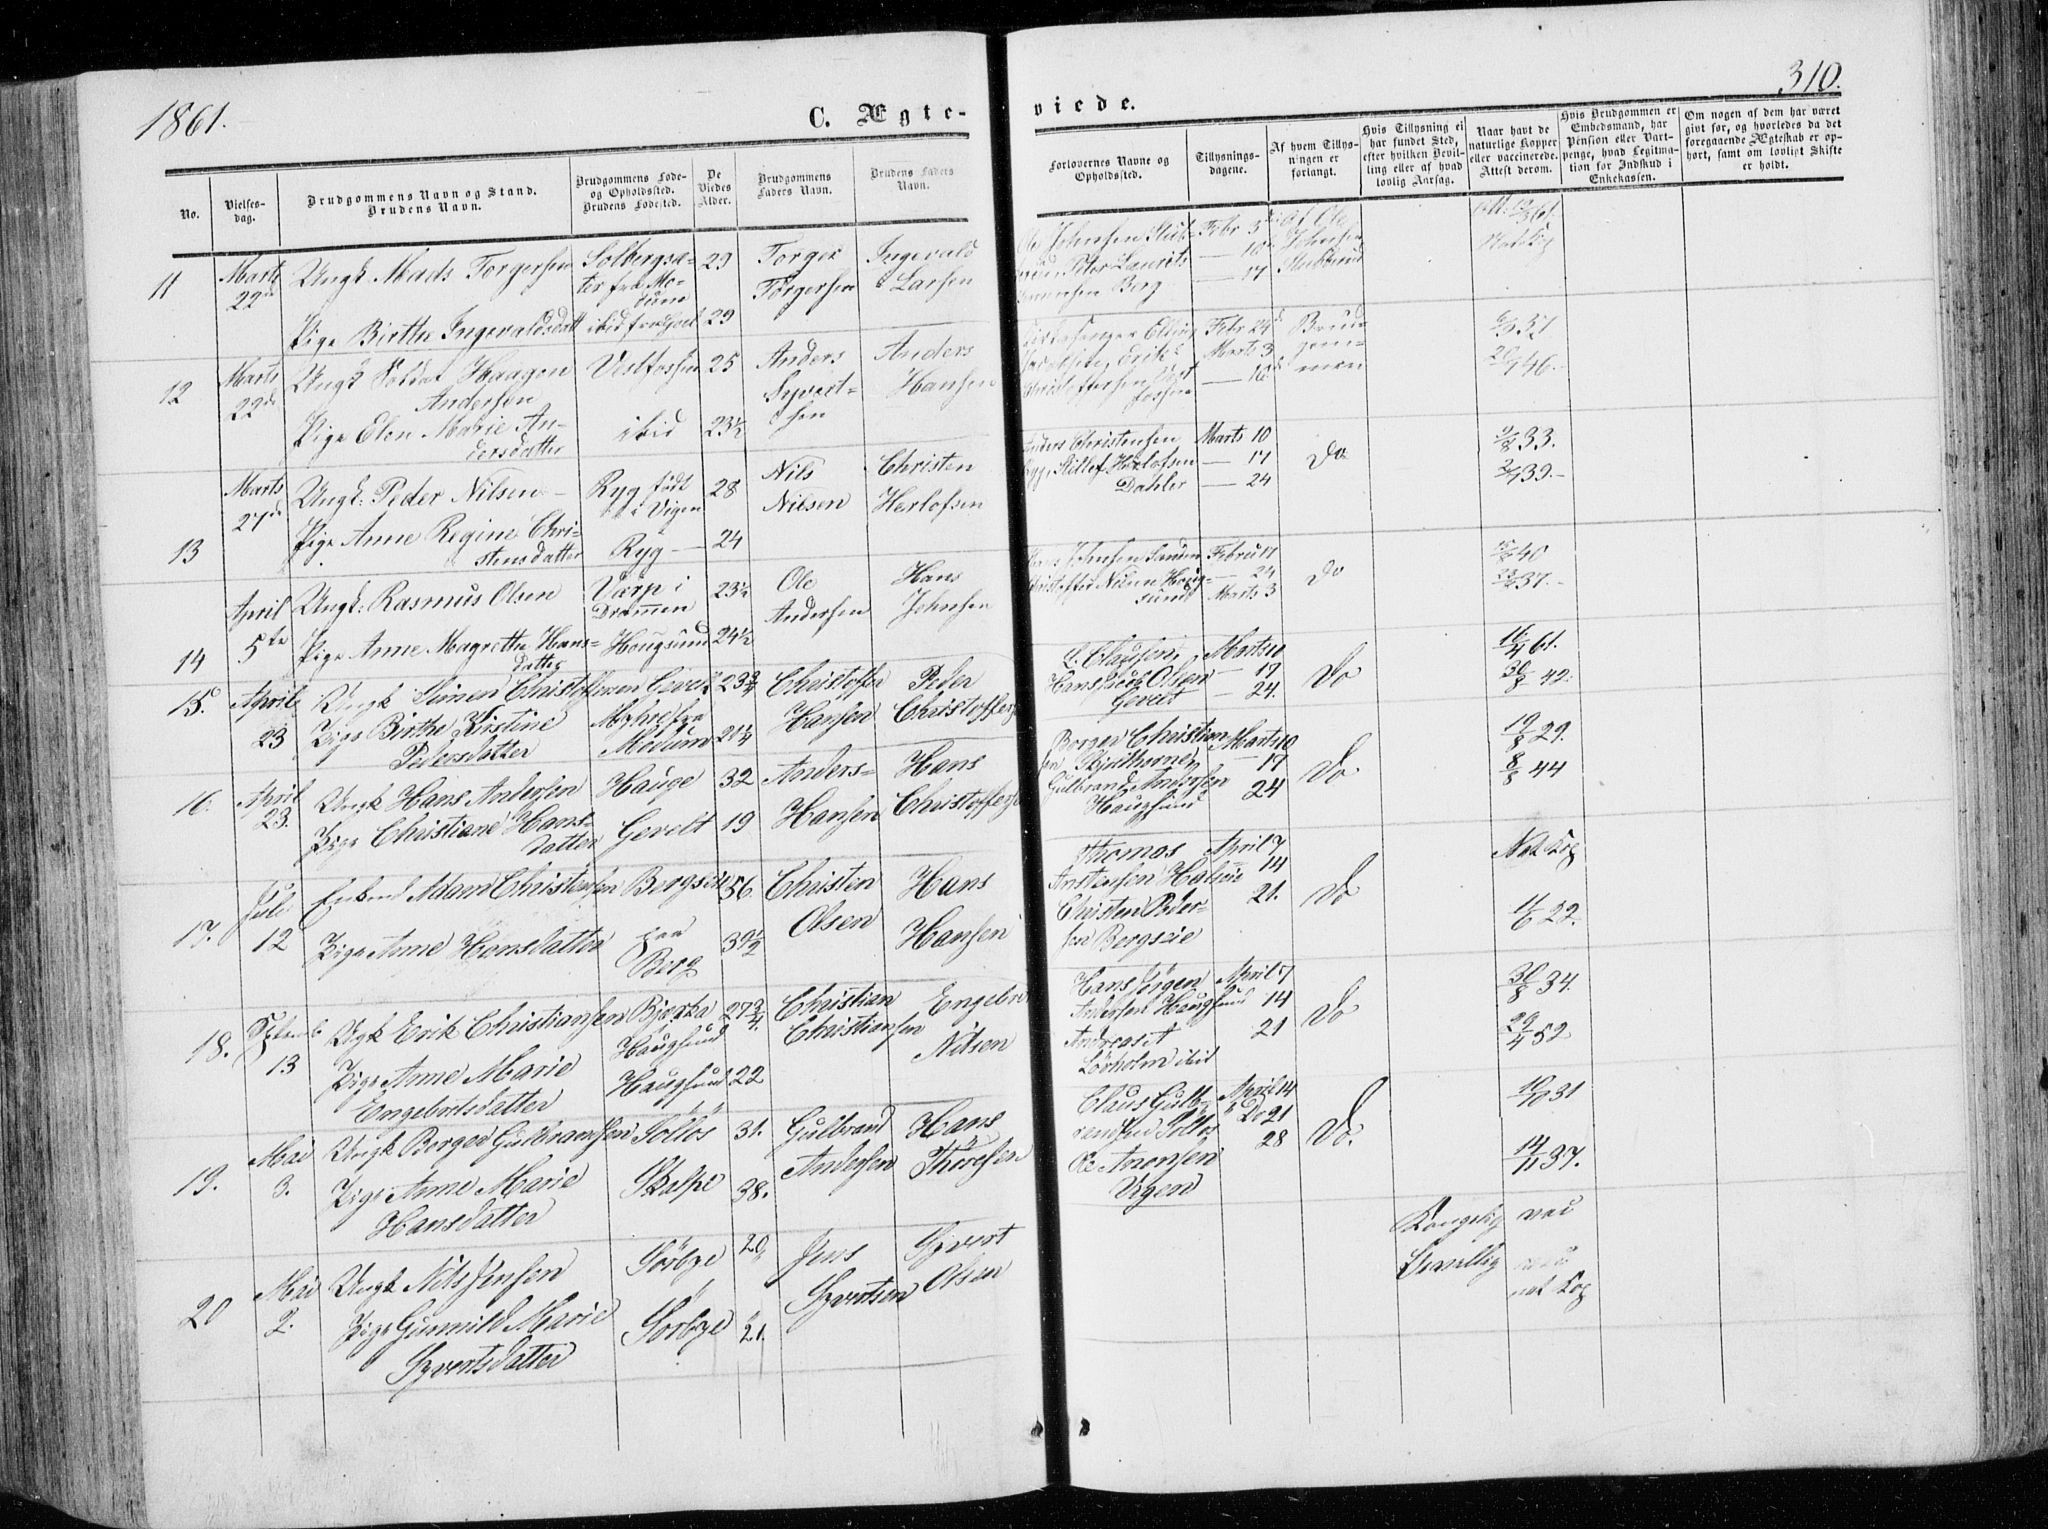 1861.
C. Ægte-
viede.
310.
No.
Vielses-
dag.
Brudgommens Navn og Stand.
Brudens Navn.
Brudgommens Føde-
og Opholdssted.
Brudens Fødested.
De
Viedes
Alder.
Brudgommens
Faders Navn.
Brudens Faders
Navn.
Forlovernes Navne og
Opholdssted.
Tillysnings-
dagene.
Af hvem Tillys-
ningen er
forlangt.
Hvis Tillysning ei
har fundet Sted,
efter hvilken Bevil-
ling eller af hvad
lovlig Aarsag.
Naar havt de
naturlige Kopper
eller vaccinerede.
Attest derom.
Hvis Brudgommen er
Embedsmand, har
Pension eller Vart-
penge, hvad Legitima-
tion for Indskud i
Enkekassen.
Om nogen af dem har været
givt før, og hvorledes da det
foregaaende Ægteskab er op-
hørt, samt om lovligt Skifte
er holdt.
11
Marts
22
Ungk. Mads Torgersen
Pige Birthe Ingevaldsdatt
Solbergsæ-
ter fra Mo-
dum
ibid fra
29
29
Torger
Torgersen
Ingevald
Larsen
Johnsen
Febr 3
Af Ole
Peter Laurits
— 10
Johnsen
Berg
— 17
Stubberud
12
Marts
22d
Ungk Soldat Haagen
Andersen
Pige Elen Marie An-
dersdatter
Vestfossen
ibid
25
23½
Anders
Syvert-
sen
Anders
Hansen
Febr 24
Marts 3
— 10
Brud-
gom-
men
37
46.
13
Marts
27d
Ungk: Peder Nilsen
Pige Anne Regine Chri-
stensdatter
Ryg født
i Vigen
Ryg —
28
24
Nils
Nilsen
Christen
Herlofsen
Anders Christensen
Herlofsen
Dahler
Marts 10
— 17
— 24
Do
33.
39.
14
April
5te
Ungk: Rasmus Olsen
Pige Anne Magrethe Hans-
datter
Værp i
Drammen
Hougsund
23½
24½
Ole
Andersen
Hans
Johnsen
Johnsen
Nilsen Houg-
sund
Febru 17
— 24
Marts 3
Do
40
37.
15.
April
23
Ungk Simen Christoffersen
Pige Birthe Kirstine
Pedersdatter
Gevelt
Myhre fra
Modum
23¾
21¼
Christoffer
Hansen
Peder
Christoffers
L. Clausen,
Hans Jacob Olsen
Gevelt
Marts 10
— 17
— 24.
Do
16/4 61.
30/8 42.
16.
April
23.
Ungk Hans Andersen
Pige Christiane Hans-
datter
Hauge
Gevelt
32
19
Anders
Hansen
Hans
Christoffers
Borger Christian
sen
Gulbrand Andersen
Haugsund
Marts 10
— 17
24
Do
19/8 29.
8/8 44
17.
Juli
12
Enkem Adam Christensen
Pige Anne Hansdatter
Bergseie
paa
Berg
56.
39½
Christen
Olsen
Hans
Hansen
Thomas
Anstensen
Christen Peder-
sen Bergseie
April 7
14
21.
Do
Nat Kop
11/6 22.
18.
Septemb
13
Ungk Erik Christiansen
Pige Anne Marie
Engebretsdatter
Bjerka
Haugsund
Haugsund
27¾.
22
Christian
Christiansen
Engebre
Nilsen
Hans Jørgen
Andersen Haugsund
Andreas A
Lørholm ibid
April 7
14
21
Do
30/8 34.
29/4 52
19.
Mai
3.
Ungk Borger Gulbransen
Pige Anne Marie
Hansdatter
Solløs
Skalpe
31.
38.
Gulbrand
Andersen
Hans
Thoresen
Claus Gulb-
randsen Solløs
Ole Aronsen
Vigen
April 14
Do 21
28
Do.
10/10 31
14/11 37.
20
Mai
2.
Ungk Nils Jensen
Pige Gunnild Marie
Syvertsdatter
Sørbye
Sørbye
29
21.
Jens
Syvertsen
Syvert
Olsen
Kongelig
Bevillig
nat Kop